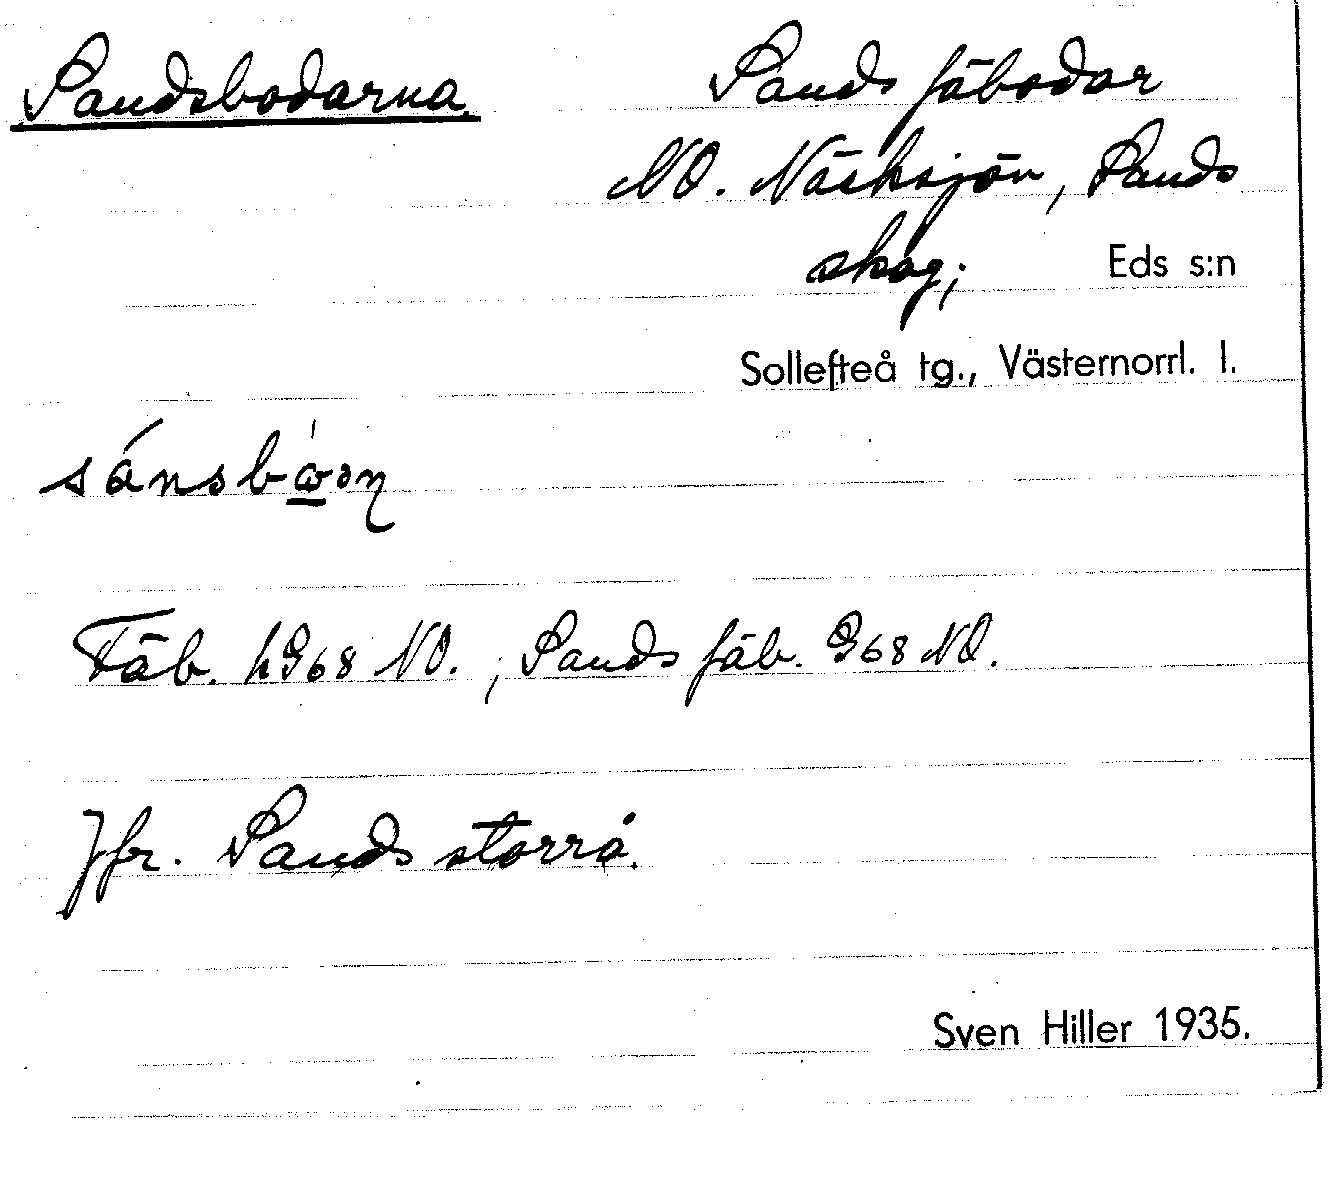 Sandsbodarna. Sands fäbodar
NO. Näcksjön, Sands
skog; Eds s:n
Sollefteå tg., Västernorrl. l.
Fäb. hG68 NO. ; Sands fäb. G68 NO.
Jfr. Sands storrå.
Sven Hiller 1935.